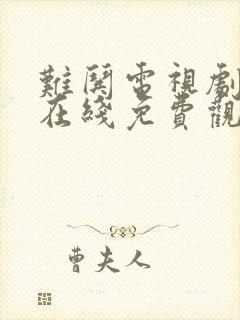 難鬨電視劇
在綫免費觀
曹夫人